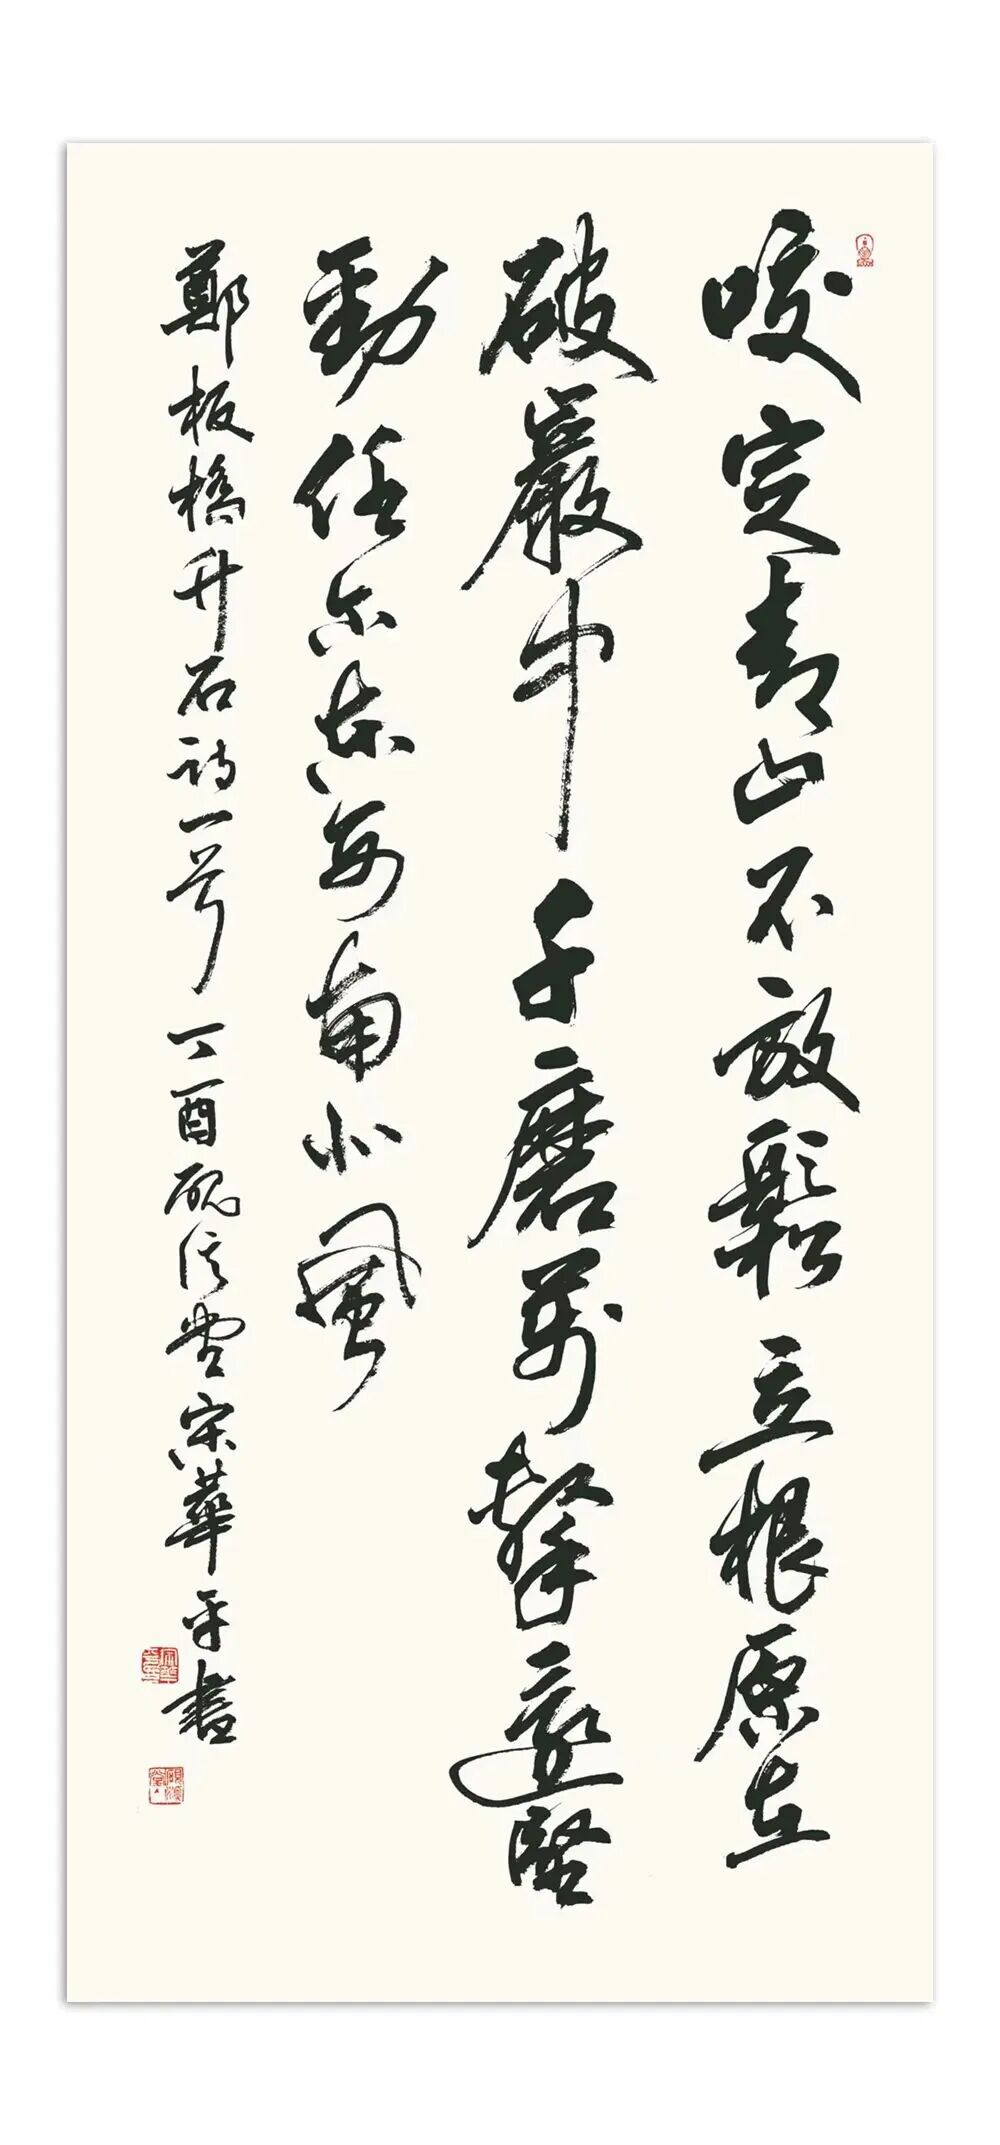 咬定青山不放鬆立根原在
破巖中千磨萬擊還堅
勁任尔東西南北風
鄭板橋竹石詩一首丁酉堂宋華平書